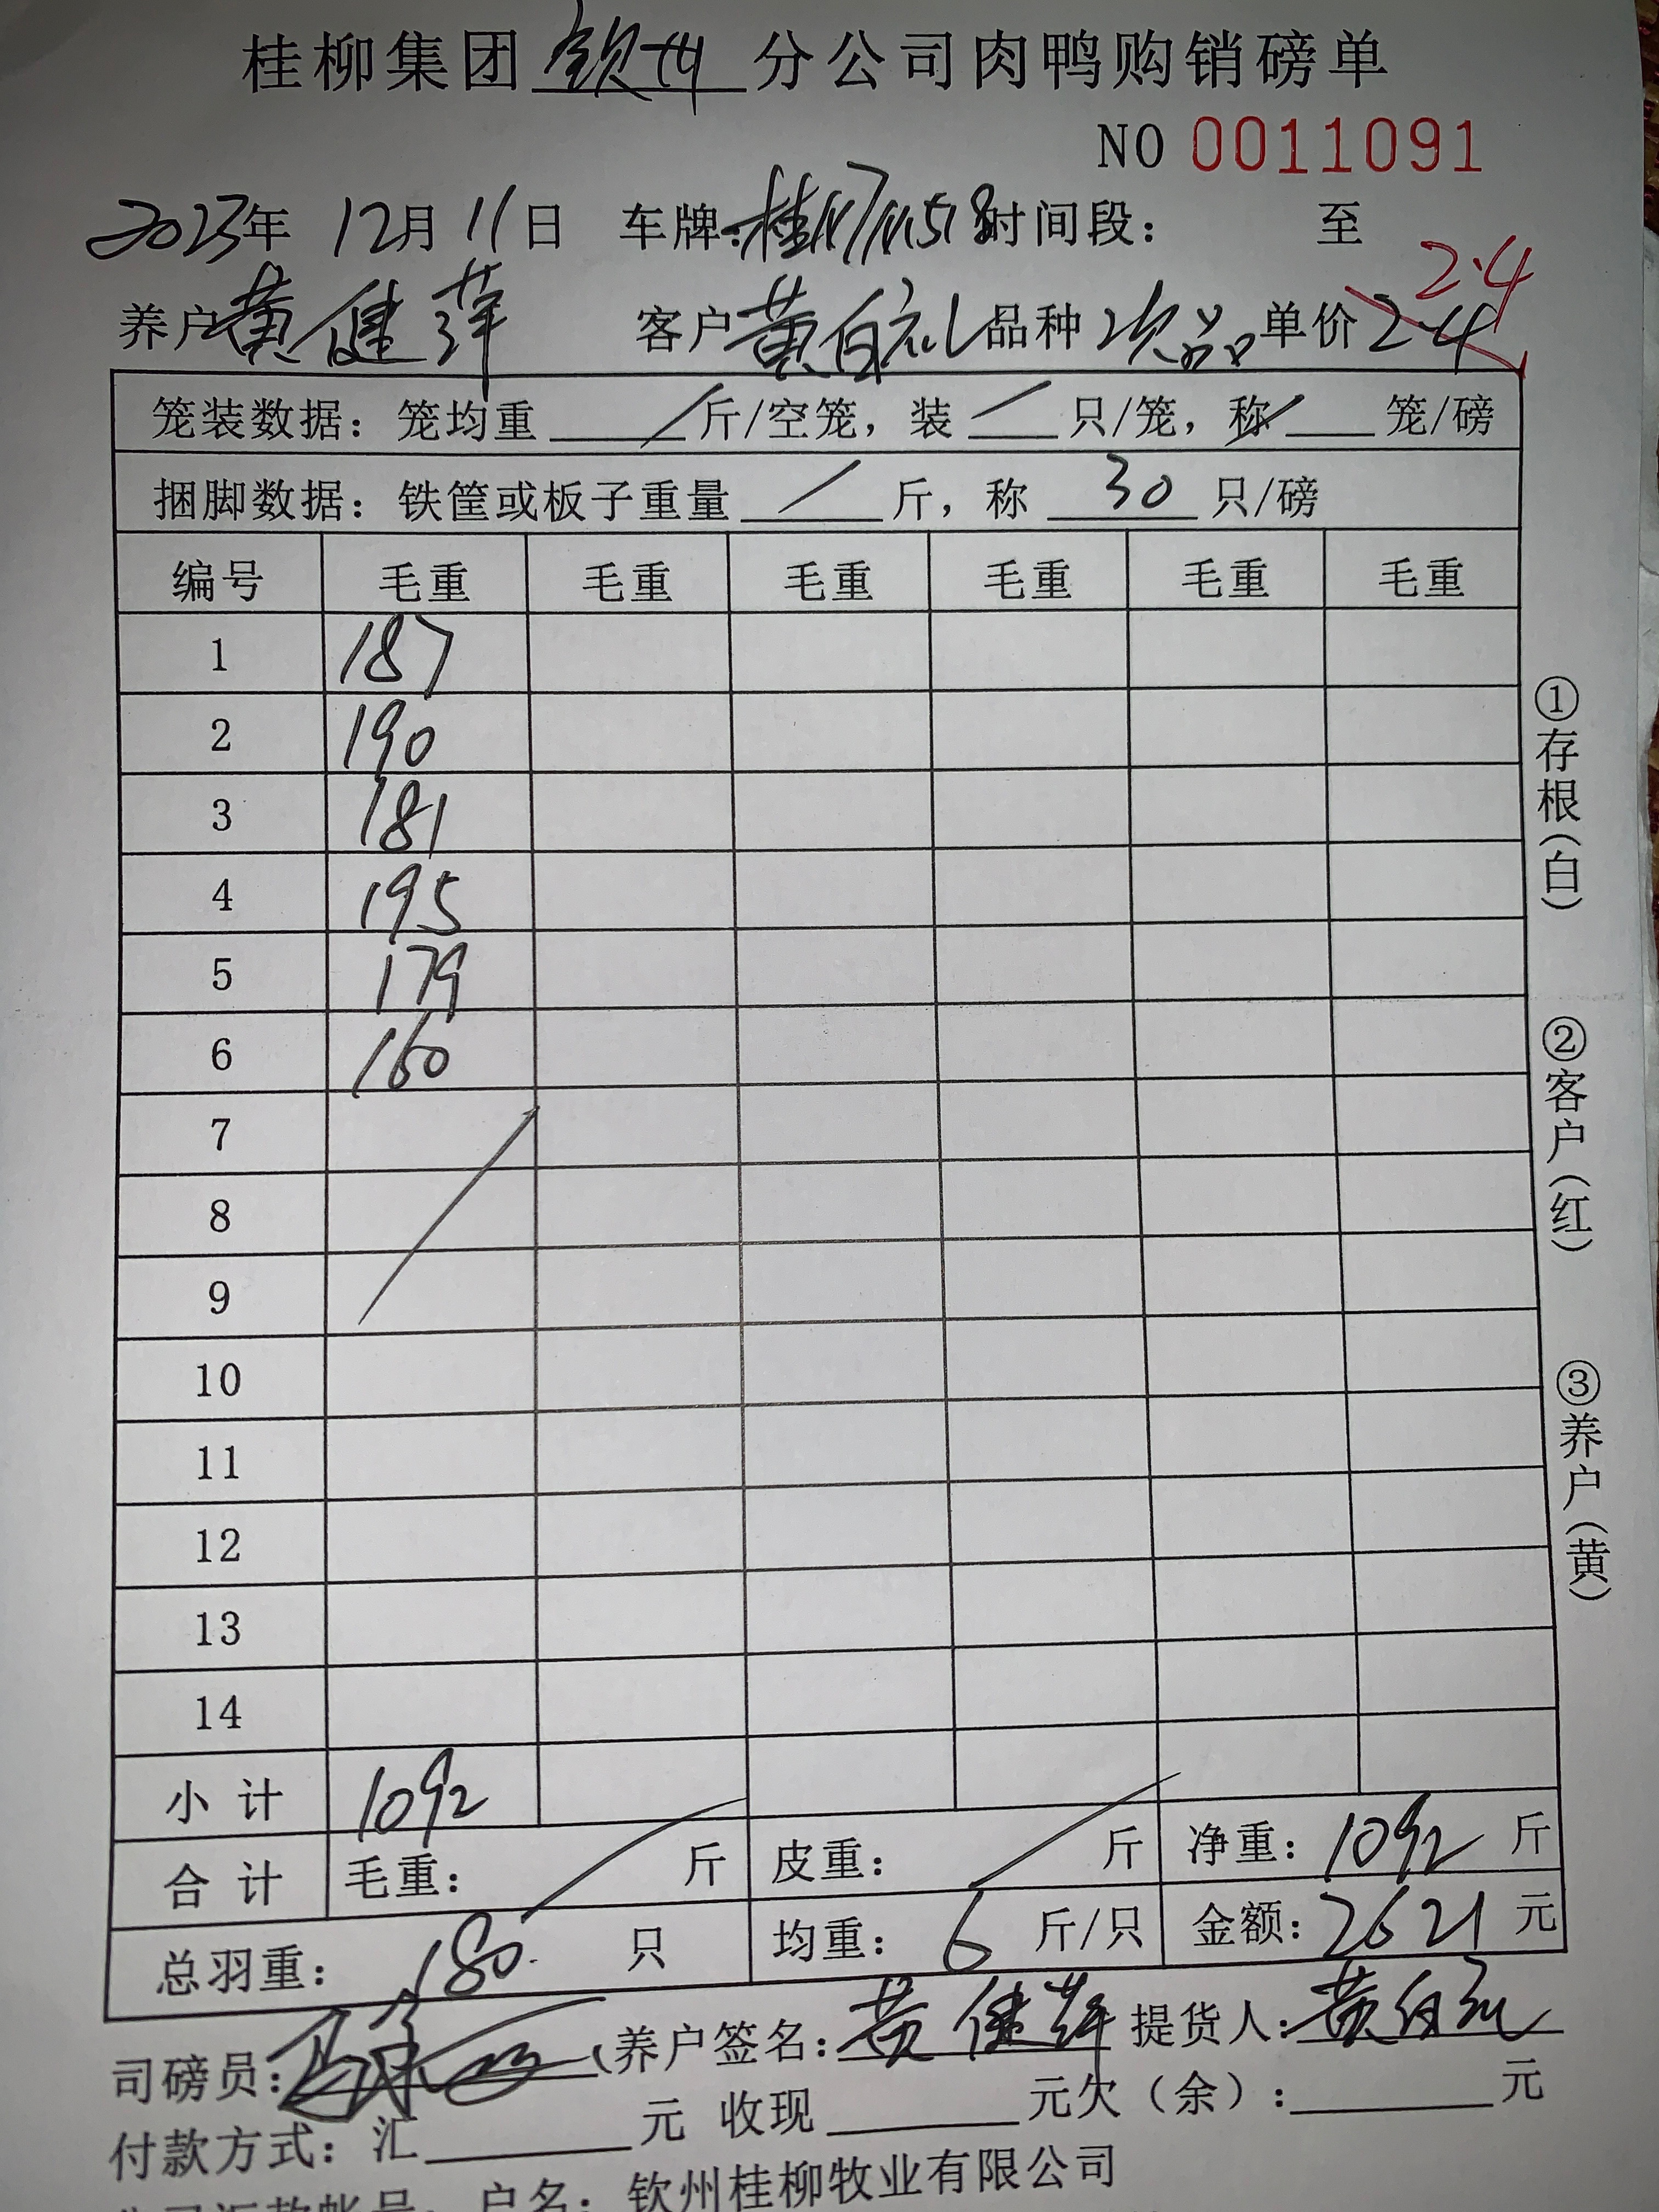 桂柳集团 钦州 分公司肉鸭购销磅单
NO 0011091
2023年 12月 11日 车牌: 时间段: 至
2.4
养户 黄健萍 客户 黄自礼 品种 次品 单价 2.4
笼装数据: 笼均重 / 斤/空笼, 装 / 只/笼, 称 / 笼/磅
捆脚数据: 铁筐或板子重量 / 斤, 称 30 只/磅
编号 毛重 毛重 毛重 毛重 毛重 毛重
1 187
2 190
3 181
4 195
5 179
6 160
7
8
9
10
11
12
13
14
小计 1092
合计 毛重: 斤 皮重: 斤 净重: 1092 斤
总羽重: 180 只 均重: 6 斤/只 金额: 2621 元
司磅员: 养户签名: 黄健萍 提货人: 黄自礼
付款方式: 汇 元 收现 元欠(余): 元
户名: 钦州桂柳牧业有限公司
①存根(白)
②客户(红)
③养户(黄)